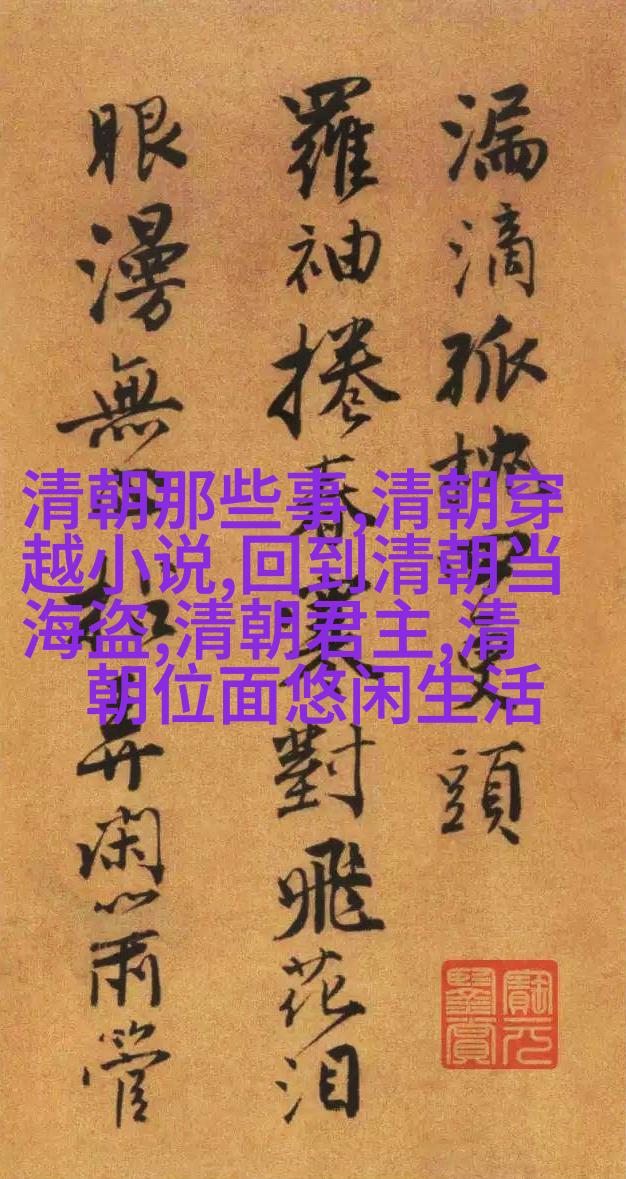 漏滴孤頭
羅袖捲春寒對飛花泪
眼漫無弄閑心雨管
清朝那些事,清朝穿
越小说,回到清朝当
海盗,清朝君主,清
朝位面悠闲生活